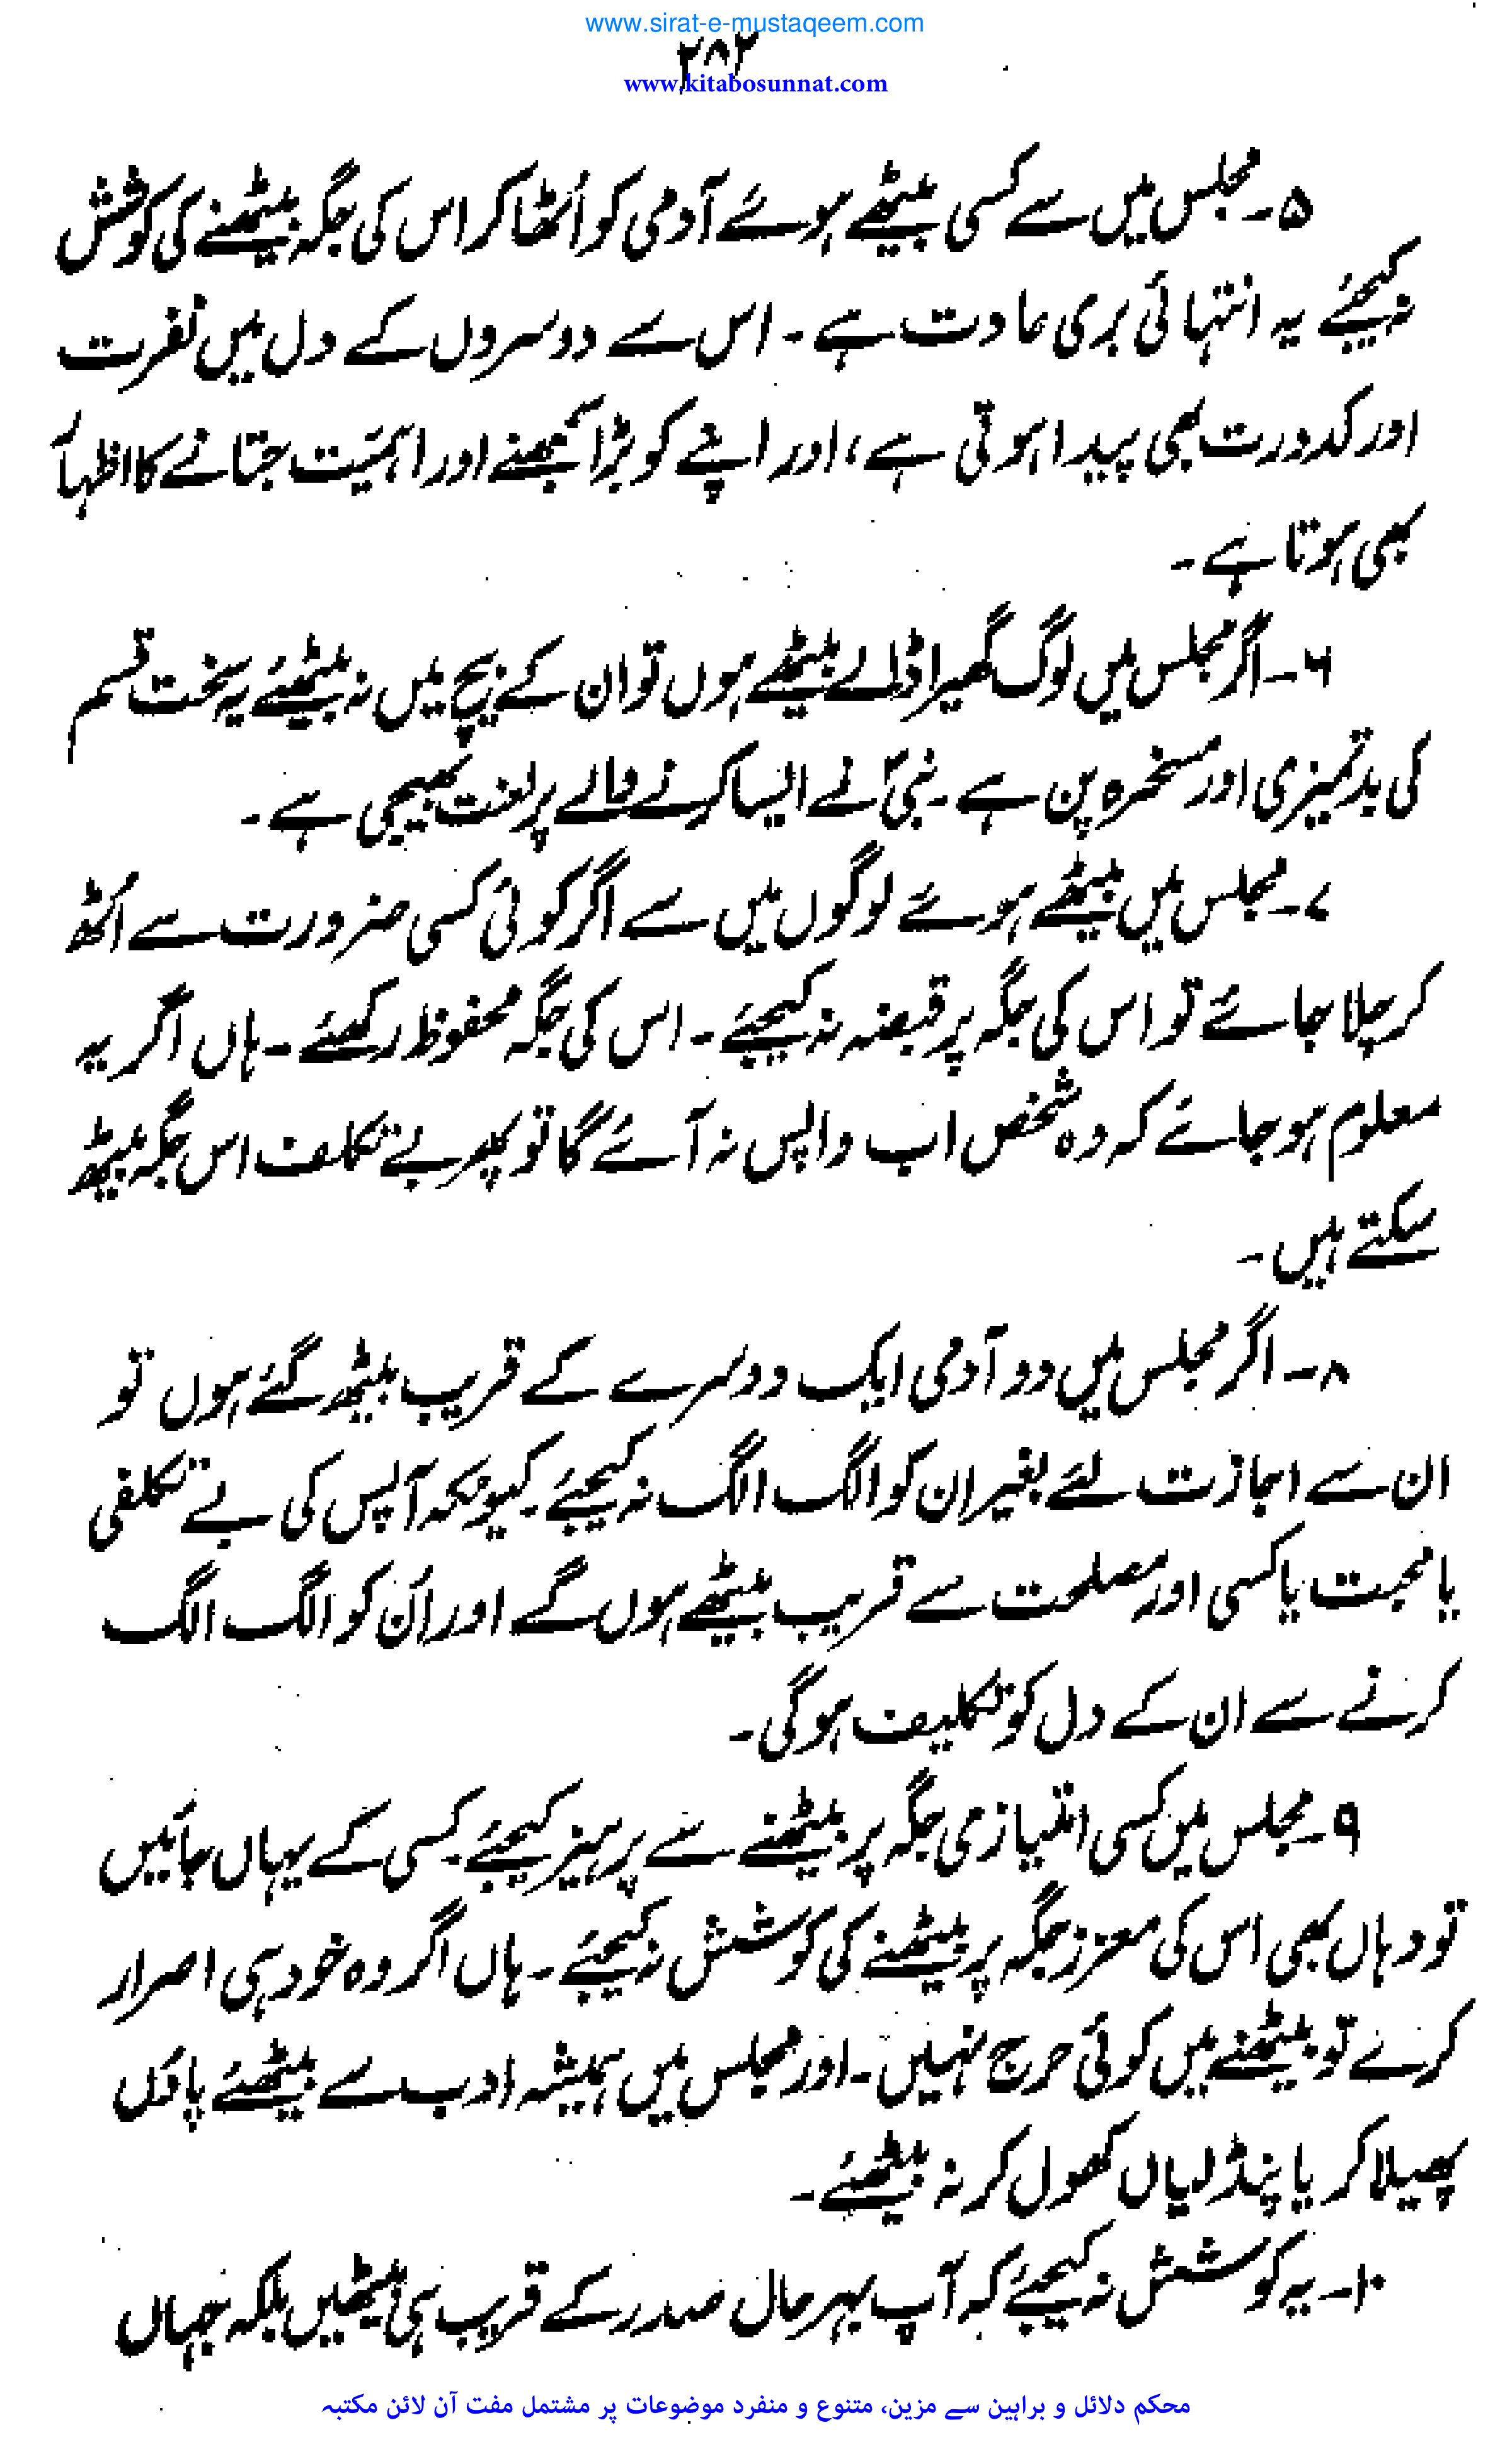 www.sirat-e-mustaqeem.com
۲۸۲
www.kitabosunnat.com
۵۔ مجلس میں سے کسی بیٹھے ہوئے آدمی کو اُٹھا کر اس کی جگہ بیٹھنے کی کوشش
نہ کیجئے یہ انتہائی بری عادت ہے ۔ اس سے دوسروں کے دل میں نفرت
اور کدورت بھی پیدا ہوتی ہے ، اور اپنے کو بڑا سمجھنے اور اہمیت جتانے کا اظہار
بھی ہوتا ہے ۔
۶۔ اگر مجلس میں لوگ گھیرا ڈالے بیٹھے ہوں تو ان کے بیچ میں نہ بیٹھئے یہ سخت قسم
کی بدتمیزی اور مسخرہ پن ہے ۔ نبیؐ نے ایسا کرنے والے پر لعنت بھیجی ہے ۔
۷۔ مجلس میں بیٹھے ہوئے لوگوں میں سے اگر کوئی کسی ضرورت سے اُٹھ
کر چلا جائے تو اس کی جگہ پر قبضہ نہ کیجئے ۔ اس کی جگہ محفوظ رکھئے ۔ ہاں اگر یہ
معلوم ہو جائے کہ وہ شخص اب واپس نہ آئے گا تو پھر بے تکلف اس جگہ بیٹھ
سکتے ہیں ۔
۸۔ اگر مجلس میں دو آدمی ایک دوسرے کے قریب بیٹھ گئے ہوں تو
ان سے اجازت لئے بغیر ان کو الگ الگ نہ کیجئے ۔ کیونکہ آپس کی بے تکلفی
یا محبت یا کسی اور مصلحت سے قریب بیٹھے ہوں گے اور اُن کو الگ الگ
کرنے سے ان کے دل کو تکلیف ہوگی ۔
۹۔ مجلس میں کسی امتیازی جگہ پر بیٹھنے سے پرہیز کیجئے ۔ کسی کے یہاں جائیں
تو وہاں بھی اس کی معزز جگہ پر بیٹھنے کی کوشش نہ کیجئے ۔ ہاں اگر وہ خود ہی اصرار
کرے تو بیٹھنے میں کوئی حرج نہیں ۔ اور مجلس میں ہمیشہ ادب سے بیٹھئے پاؤں
پھیلا کر یا پنڈلیاں کھول کر نہ بیٹھئے ۔
۱۰۔ یہ کوشش نہ کیجئے کہ آپ بہر حال صدر کے قریب ہی بیٹھیں بلکہ جہاں
محکم دلائل و براہین سے مزین، متنوع و منفرد موضوعات پر مشتمل مفت آن لائن مکتبہ